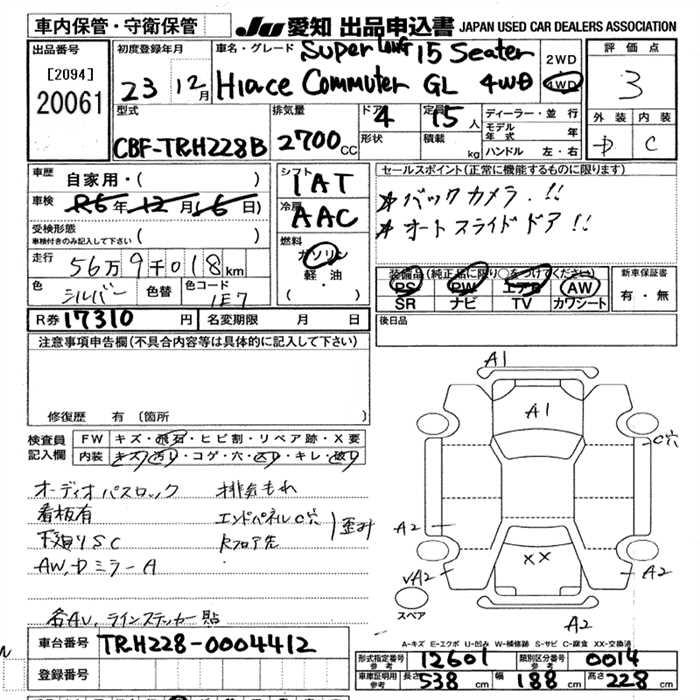 車内保管・守衛保管
JU 愛知 出品申込書 JAPAN USED CAR DEALERS ASSOCIATION
出品番号
[2094]
20061
初度登録年月
23 12月
車名・グレード
Super Long 15 Seater
Hiace Commuter GL 4WD
2WD
4WD
評価点
3
外装 内装
D C
型式
CBF-TRH228B
排気量
2700cc
ドア
4
形状
定員
15人
積載
kg
ディーラー・並行
モデル年式 年
ハンドル 左・右
車歴
自家用・( )
車検
R6年12月(6日)
受検形態
車検付きのみ記入して下さい ( )
走行
56万9千018km
色
シルバー
色替
色コード
1E7
シフト
1AT
冷房
AAC
燃料
ガソリン
軽油
( ・ )
セールスポイント(正常に機能するものに限ります)
バックカメラ.!!
オートスライドドア!!
装備品(純正品に限り○をつけてください)
PS PW エアB AW
SR ナビ TV カワシート
新車保証書
有・無
後日品
R券 17310 円 名変期限 月 日
注意事項申告欄(不具合内容等は具体的に記入して下さい)
修復歴 有(箇所 )
検査員
記入欄
FW キズ・飛石・ヒビ割・リペア跡・X要
内装 キズ・汚れ・コゲ・穴・スリ・キレ・破り
オーディオパスロック 排気もれ
看板有 エンドパネルC穴
下廻りSC Rフロア先
歪み
AW,DミラーA
各AU,ラインステッカー貼
A1
A1
C穴
A2
XX
VA2
A2
A2
スペア
A-キズ E-エクボ U-凹み W-補修跡 S-サビ C-腐食 XX-交換済
車台番号
TRH228-0004412
登録番号
形式指定番号
参考
12601
類別区分番号
参考
0014
車庫証明用
参考
長さ 538cm 幅 188cm 高さ 228cm